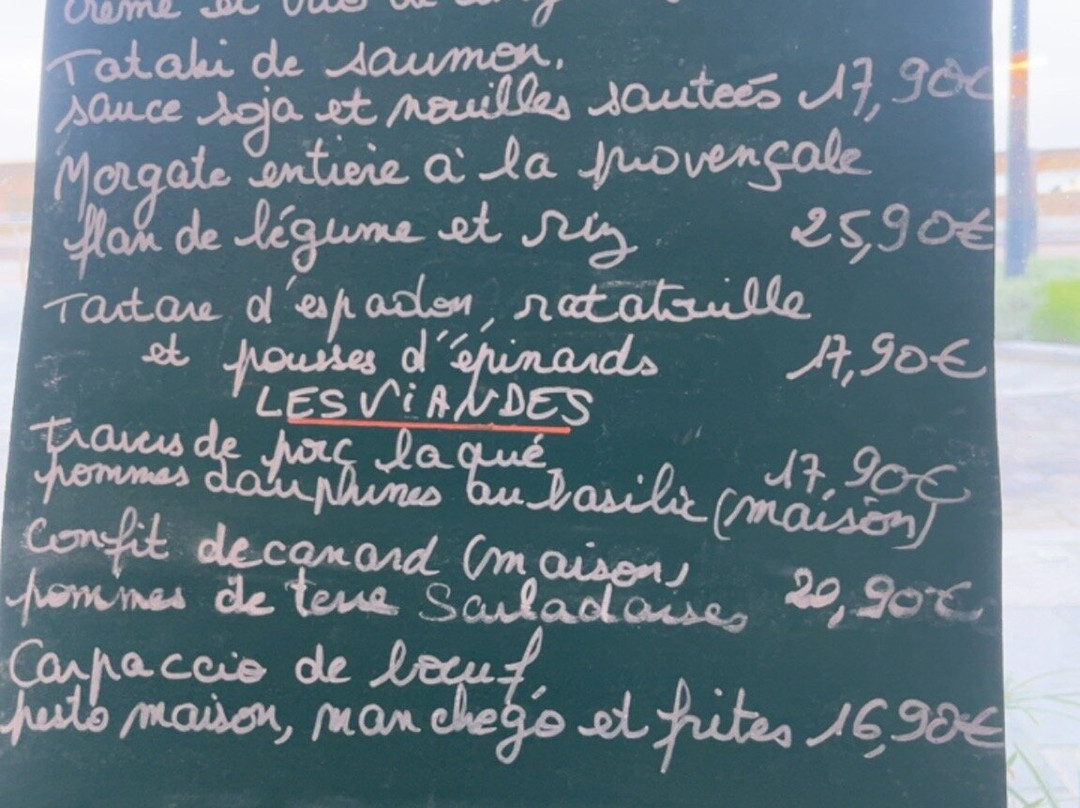 crème et
Tataki de saumon,
sauce soja et nouilles sautées 17,90€
Morgate entière à la provençale
flan de légume et riz 25,90€
Tartare d'espadon, ratatouille
et pousses d'épinards 17,90€
LES ViANDES
Travers de porc laqué,
pommes dauphines au basilic (maison) 17,90€
Confit de canard (maison)
pommes de terre Sarladaises, 20,90€
Carpaccio de bœuf,
pesto maison, manchego et frites 16,90€